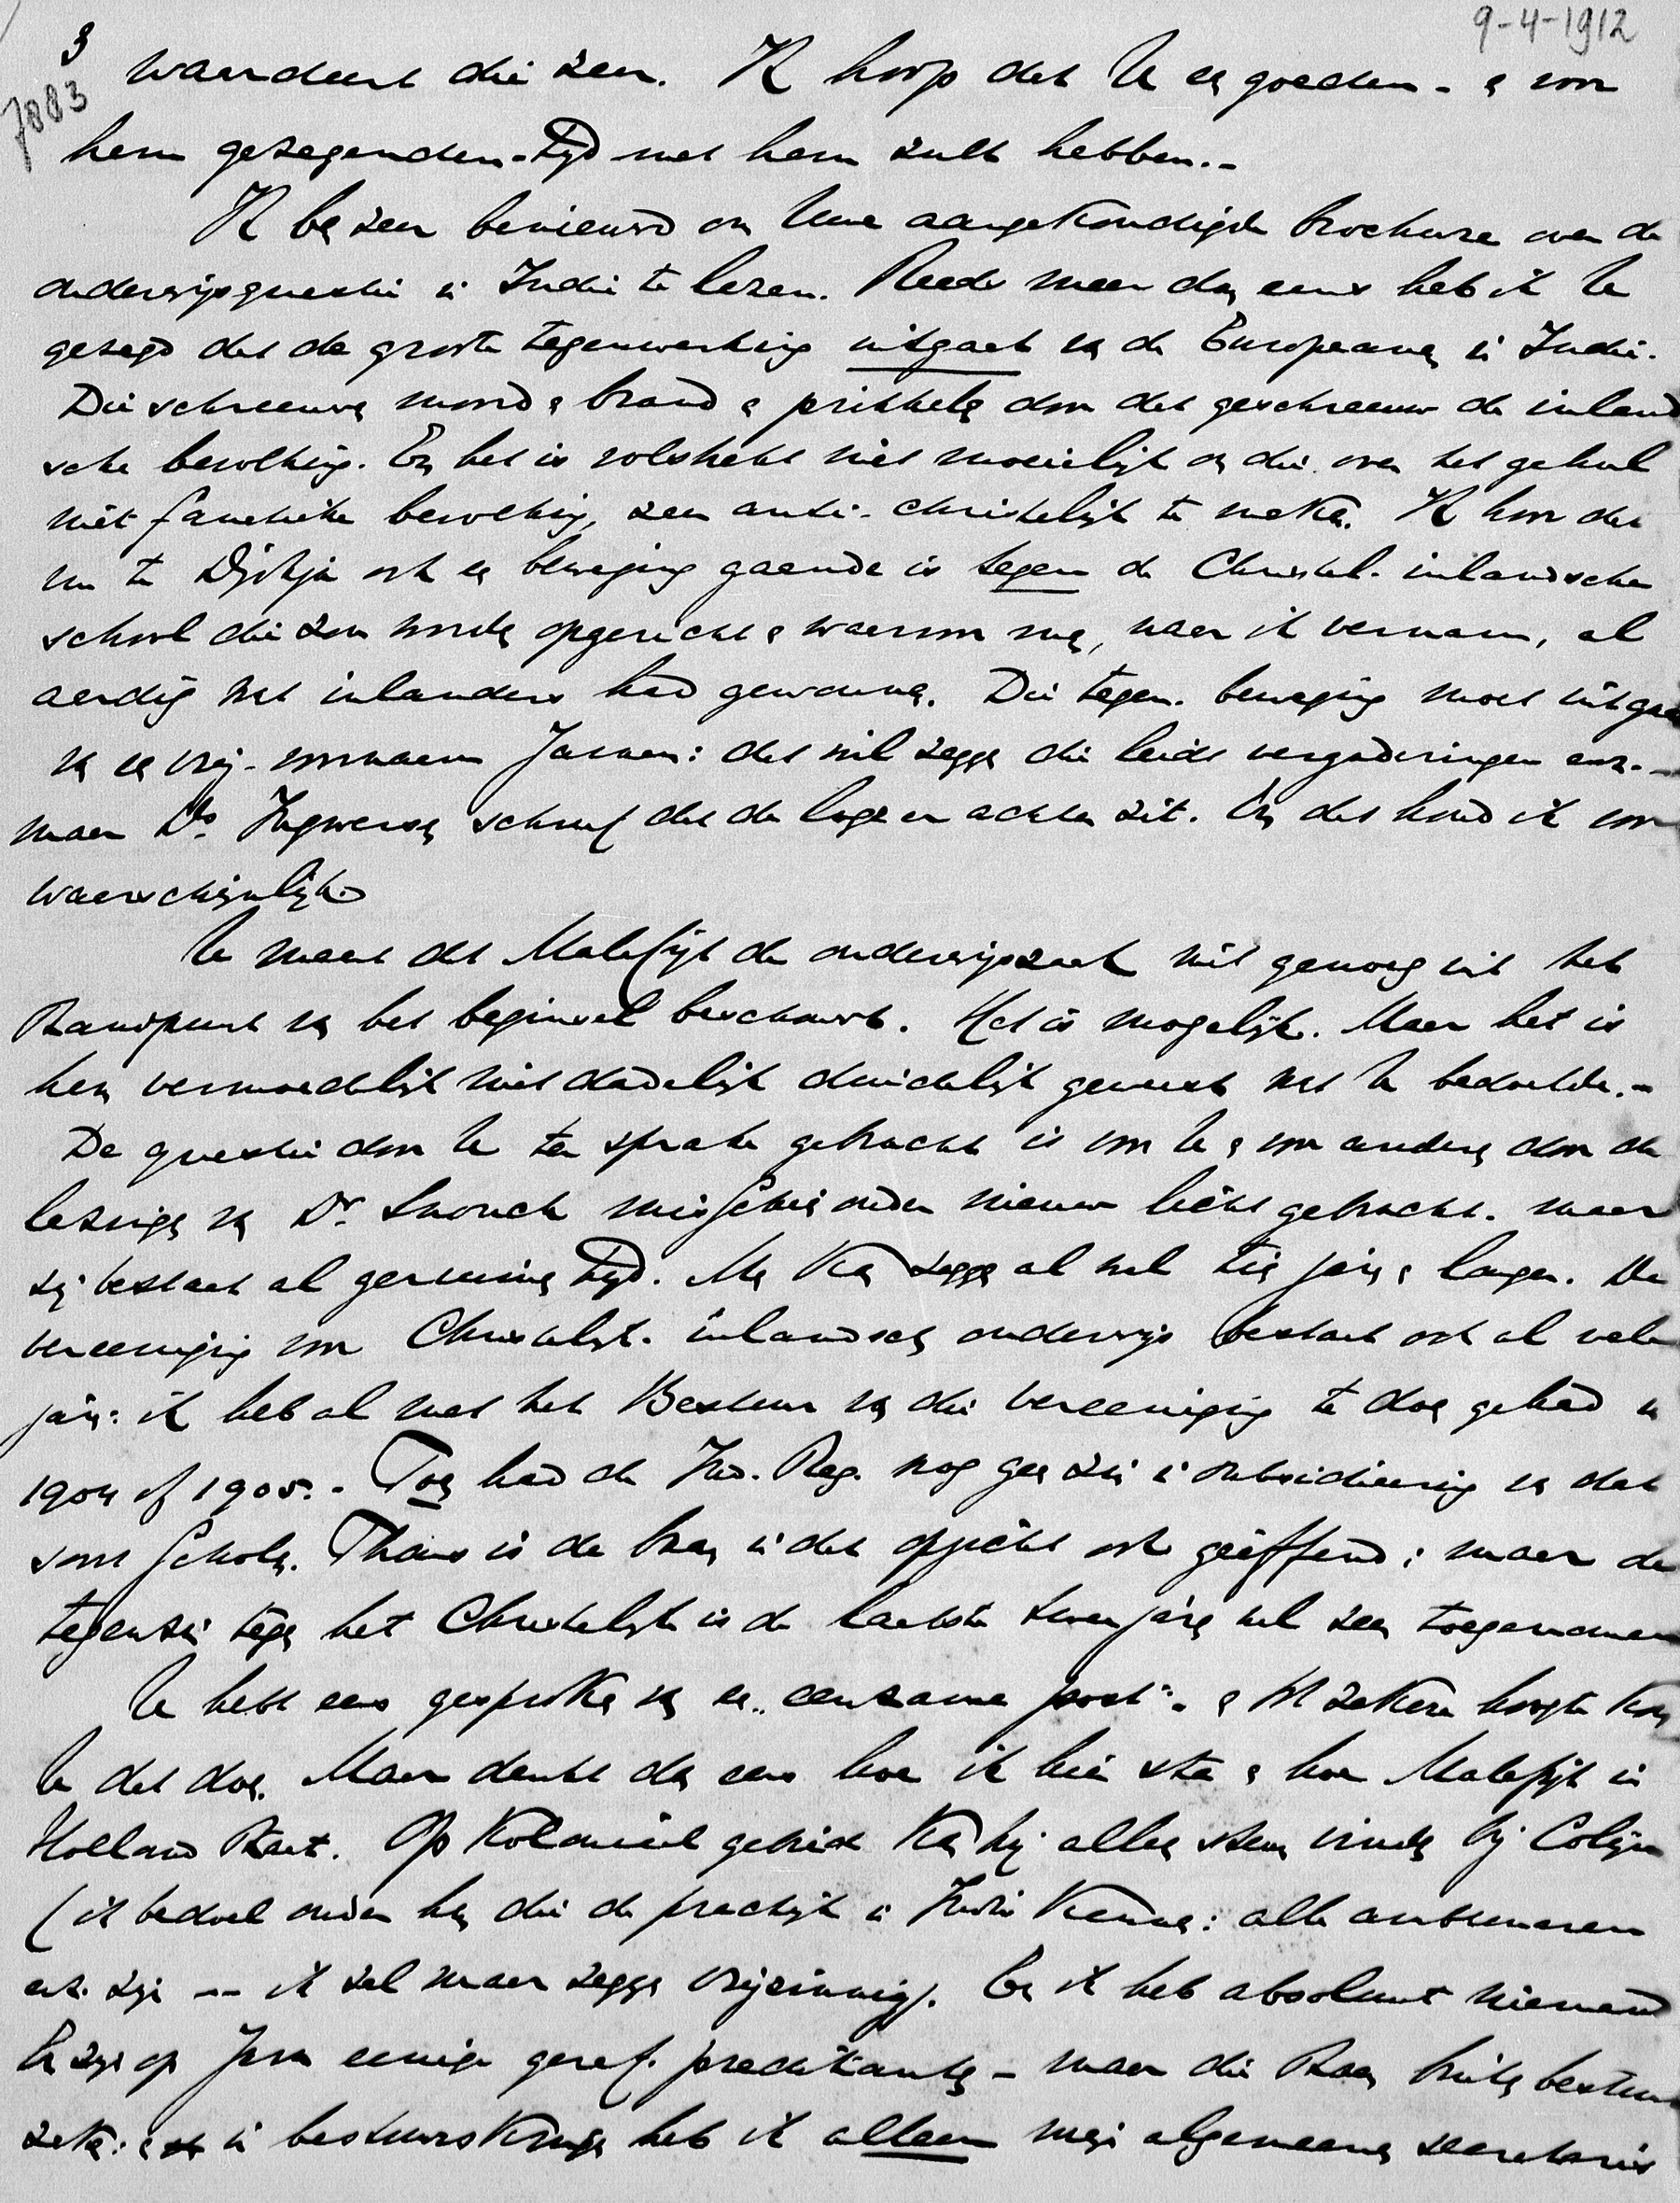 9-4-1912
3
7883
waardeert die zeer. Ik hoop dat U een goeden - en voor
hem gezegenden - tijd met hem zult hebben. -
Ik ben zeer benieuwd om Uwe aangekondigde brochure over de
onderwijsquestie in Indië te lezen. Reeds meer dan eens heb ik U
gezegd dat de groote tegenwerking uitgaat van de Europeanen in Indië.
Die schreeuwen moord en brand en prikkelen door dat geschreeuw de inland
sche bevolking. En het is volstrekt niet moeielijk om die over het geheel
niet fanatieke bevolking, zeer anti-christelijk te maken. Ik hoor dat
nu te Djokja ook een beweging gaande is tegen de Christel. inlandsche
school die zou worden opgericht en waarvoor men, naar ik vernam, al
aardig wat inlanders had gewonnen. Die tegen-beweging moet uitgaan
van een vrij-voornaam Javaan: dat wil zeggen die leidt vergaderingen enz. -
maar Ds. Ingwersen schreef dat de loge er achter zit. En dat houd ik voor
waarschijnlijk.
U meent dat Malefijt de onderwijszaak niet genoeg uit het
standpunt van het beginsel beschouwt. Het is mogelijk. Maar het is
hem vermoedelijk niet dadelijk duidelijk geweest wat U bedoelde. -
De questie door U ter sprake gebracht is voor U en voor anderen door de
lezingen van Dr. Snouck misschien onder nieuw licht gebracht. maar
zij bestaat al geruimen tijd. Men kan zeggen al wel tien jaren en langer. De
vereeniging voor Christelijk. inlandsch onderwijs bestaat ook al vele
jaren: ik heb al met het Bestuur van die vereeniging te doen gehad in
1904 of 1905. - Toen had de Ind. Reg. nog geen zin in subsidieering van dat
soort scholen. Thans is de baan in dat opzicht ook geëffend; maar de
tegenzin tegen het Christelijk is de laatste twee jaren wel zeer toegenomen
U hebt eens gesproken van een "eenzame post" - en tot zekere hoogte kon
U dat doen. Maar denkt dan eens hoe ik hier sta en hoe Malefijt in
Holland staat. Op koloniaal gebied kan hij alleen steun vinden bij Colijn
(ik bedoel onder hen die de practijk in Indië kennen: alle ambtenaren
enz. zijn -- ik zal maar zeggen vrijzinnig). En ik heb absoluut niemand
Er zijn op Java eenige geref. predikanten - maar die staan buiten bestuurs
zaken: en in bestuurskringen heb ik alleen mijn algemeene secretaris